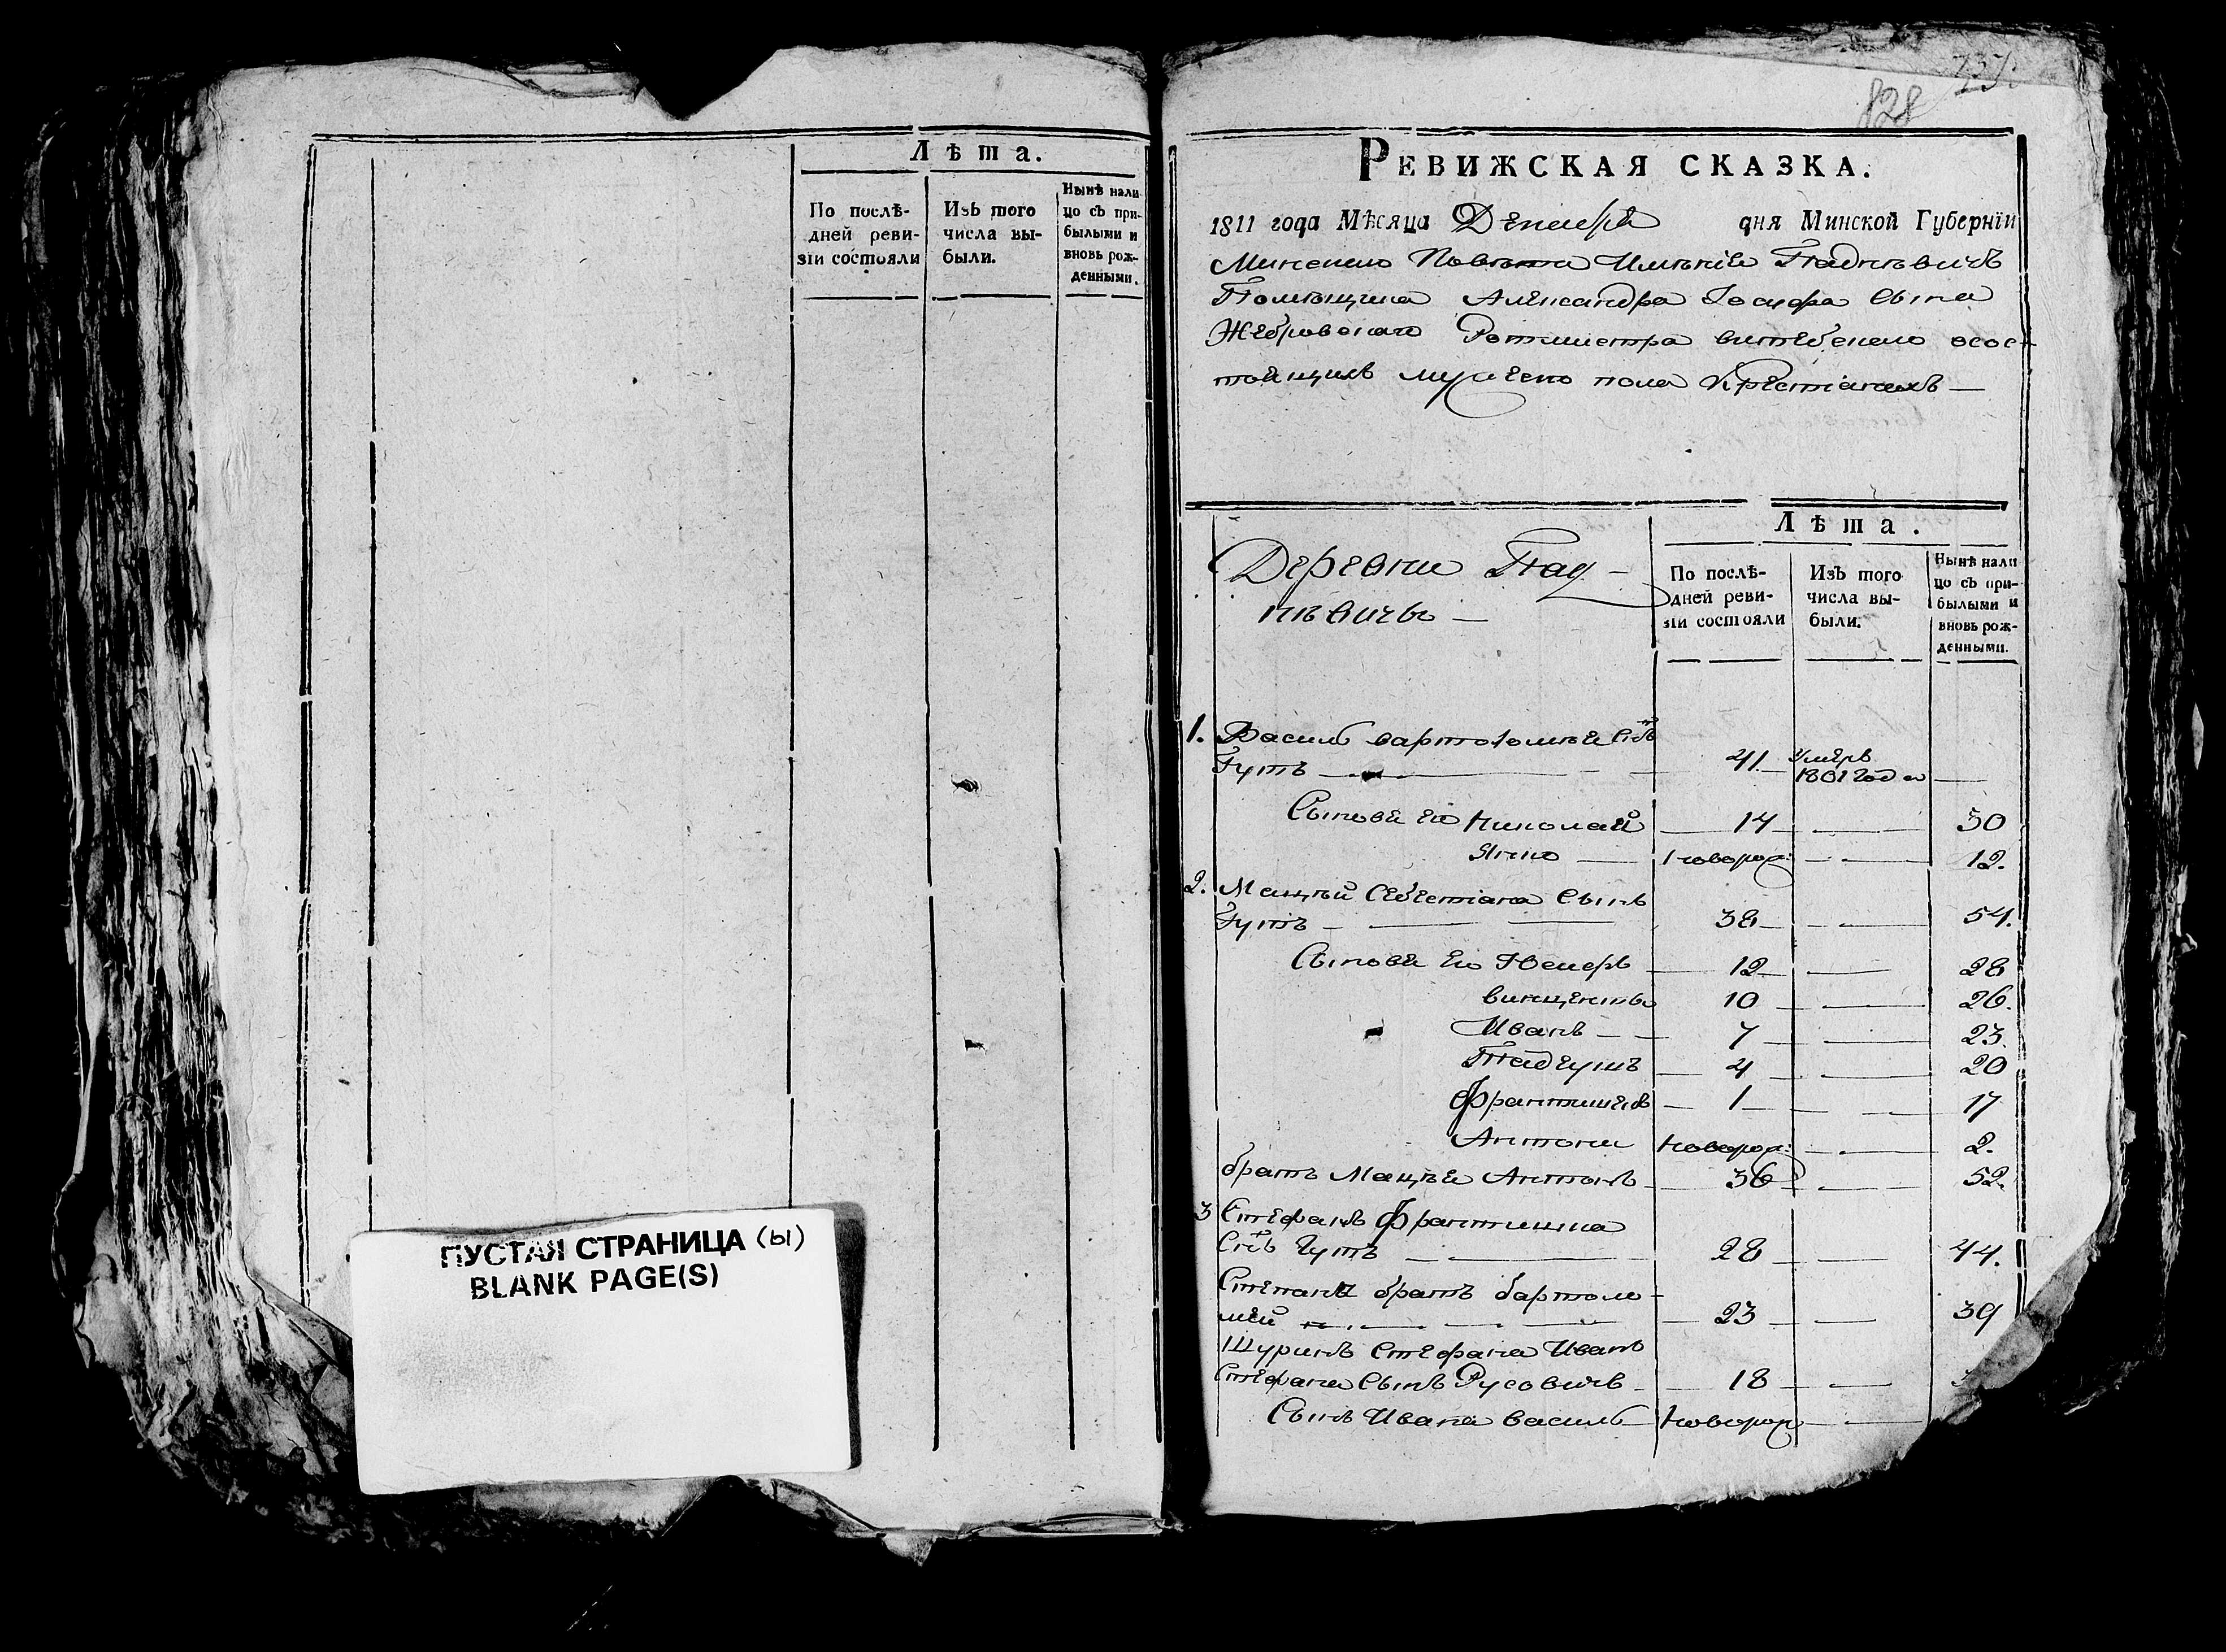 Лѣта.
По послѣ-
дней реви-
зіи состояли
Изъ того
числа вы-
были.
Нынѣ нали-
цо съ при-
былыми и
вновь рож-
денными.
ПУСТАЯ СТРАНИЦА (ы)
BLANK PAGE(S)
737.
828
РЕВИЖСКАЯ СКАЗКА.
1811 года Мѣсяца Декабра дня Минской Губерніи
Минскаго Повѣта Имѣнія
Помѣщика Александра Іосифа Сына
Жебровскаго Ротмистра витебскаго осос-
тоящихъ мужеско пола Крестіанахъ —
Лѣта.
Деревни
По послѣ-
дней реви-
зіи состояли
Изъ того
числа вы-
были.
Нынѣ нали
цо съ при-
былыми и
вновь рож-
денными.
1. Василь вартоломея Снъ
Гутъ — 41 — Умеръ 1801 Года —
Сыновя его Николай — 14 — 30
Янко — новорож: — 12.
2. Мацѣй Себестіана Сынъ
Гутъ — 38 — 54.
Сыновя его — 12 — 28
винцентъ 10 — 26.
Иванъ — 7 — 23.
Тадеушъ — 4 — 20
Франтишекъ — 1 — 17
Антони новорож: — 2.
братъ Мацѣя Антонъ — 36 — 52.
3 Стефанъ Франтишка
Снъ Гутъ — 28 — 44.
Степана братъ бартоло-
мей — 23 — 39
Шуринъ Стефана Иванъ
Стефана Сынъ Русовичъ — 18 —
Сынъ Ивана василь новорож —